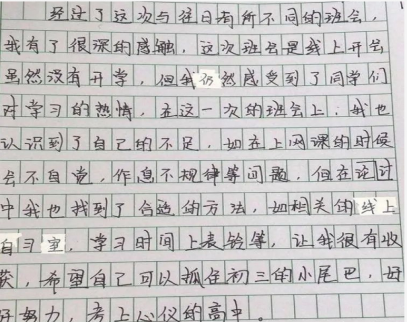 经过了这次与往日有所不同的班会，
我有了很深的感触，这次班会是线上开会
虽然没有开学，但我仍然感受到了同学们
对学习的热情，在这一次的班会上，我也
认识到了自己的不足，如在上网课的时候
会不自觉，作息不规律等问题，但在讨论
中我也找到了合适的方法，如相关的线上
自习室，学习时间上表铃等，让我很有收
获，希望自己可以抓住初三的小尾巴，好
好努力，考上心仪的高中。